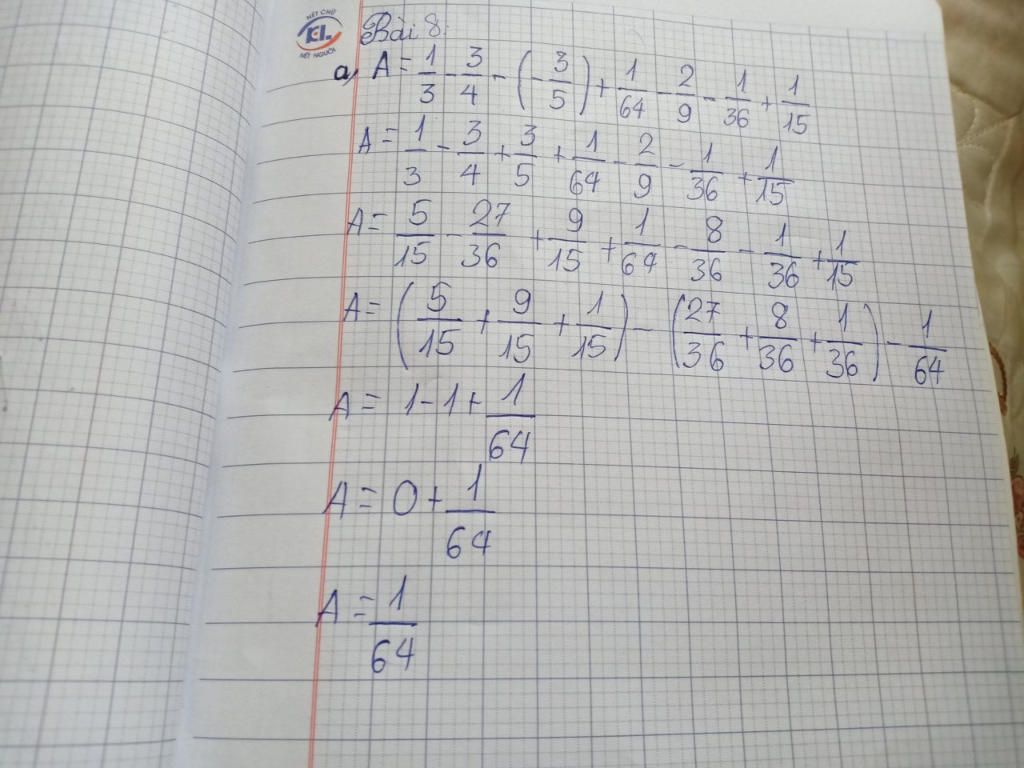 NÉT CHỮ
KEL
NẾT NGƯỜI
Bài 8:
a, A = 1/3 - 3/4 - (-3/5) + 1/64 - 2/9 - 1/36 + 1/15
A = 1/3 - 3/4 + 3/5 + 1/64 - 2/9 - 1/36 + 1/15
A = 5/15 - 27/36 + 9/15 + 1/64 - 8/36 - 1/36 + 1/15
A = (5/15 + 9/15 + 1/15) - (27/36 + 8/36 + 1/36) - 1/64
A = 1 - 1 + 1/64
A = 0 + 1/64
A = 1/64